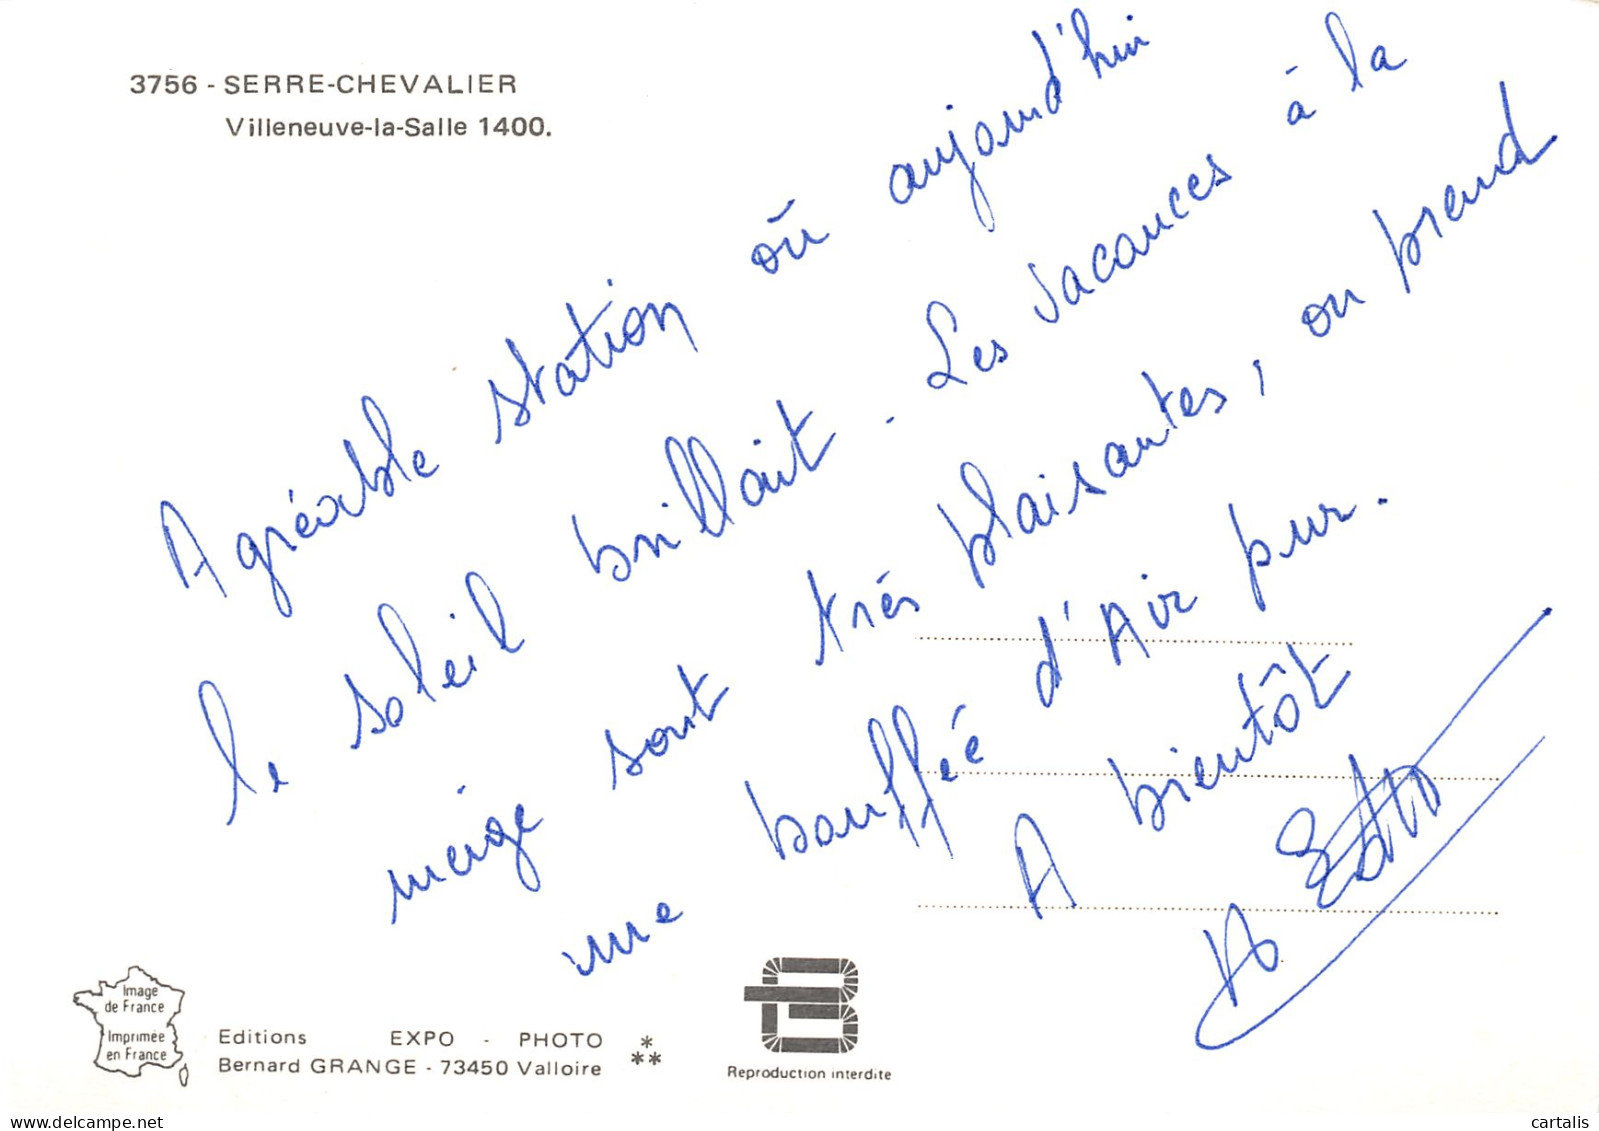 3756 - SERRE-CHEVALIER
Villeneuve-la-Salle 1400.
Agréable station où aujourd'hui
le soleil brillait. Les vacances à la
neige sont très plaisantes, on prend
une bouffée d'Air pur.
A bientôt
Image
de France
Imprimée
en France
Editions EXPO - PHOTO *
Bernard GRANGE - 73450 Valloire **
Reproduction interdite
cartalis